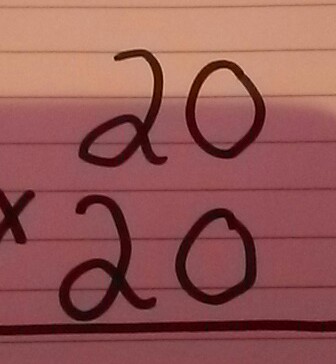 20
x 20